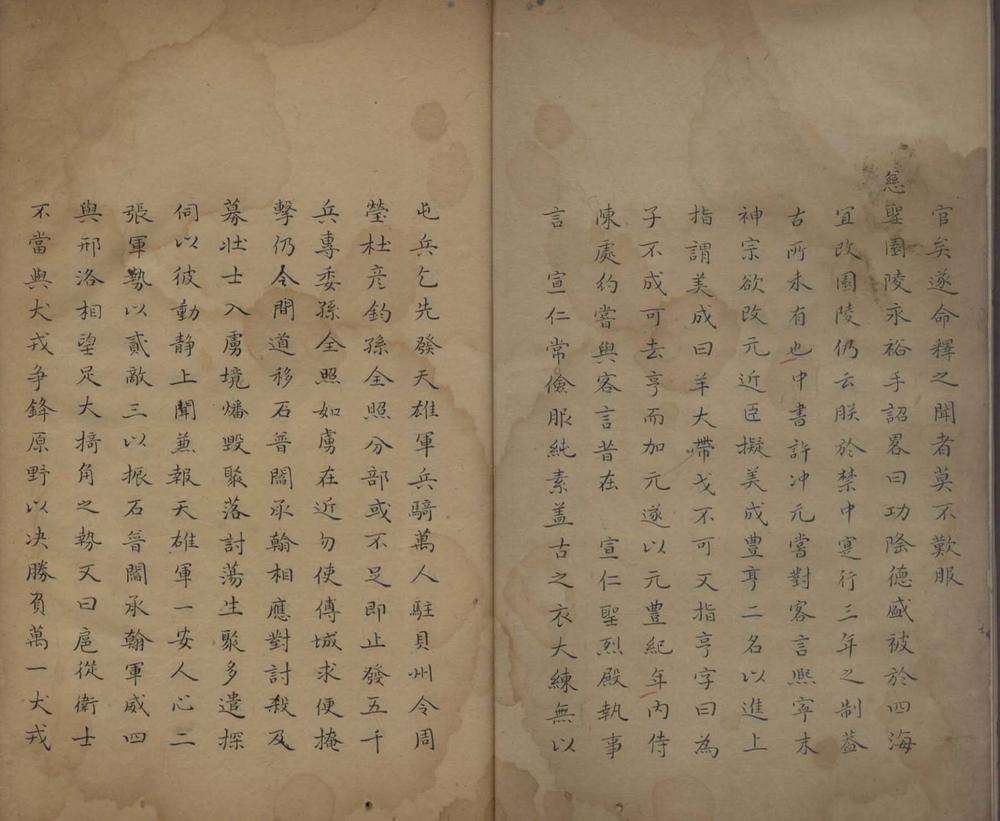 官矣遂命釋之聞者莫不歎服
慈聖園陵永裕手詔畧曰功隆德盛被於四海
宜改園陵仍云朕於禁中寔行三年之制葢
古所未有也中書許冲元嘗對客言熙寧末
神宗欲改元近臣擬美成豊亨二名以進上
指謂美成曰羊大帶戈不可又指亨字曰為
子不成可去亨而加元遂以元豊紀年內侍
陳處約嘗與客言昔在　宣仁聖烈殿執事
言　宣仁常儉服純素盖古之衣大練無以
屯兵乞先發天雄軍兵騎萬人駐貝州令周
瑩杜彦鈞孫全照分部或不足即止發五千
兵專委孫全照如虜在近勿使傅城求便掩
擊仍令間道移石普閻承翰相應對討殺及
募壮士入虜境燔毀聚落討蕩生聚多遣探
伺以彼動静上聞兼報天雄軍一安人心二
張軍勢以貳敵三以振石普閻承翰軍威四
與邢洛相望足大掎角之勢又曰扈從衛士
不當與犬戎争鋒原野以决勝負萬一犬戎